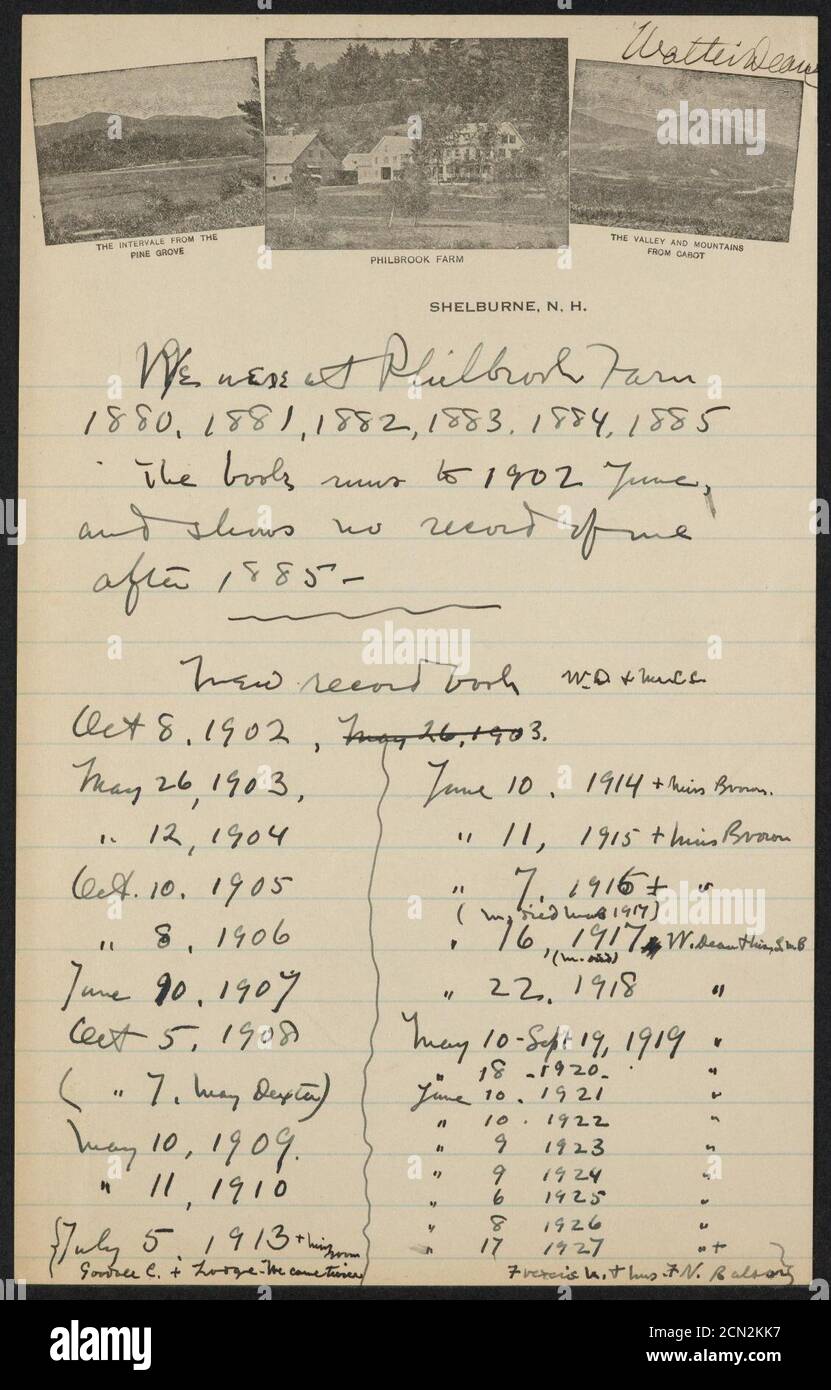 Walter Deane
THE INTERVALE FROM THE
PINE GROVE
PHILBROOK FARM
THE VALLEY AND MOUNTAINS
FROM CABOT
SHELBURNE, N. H.
We were at Philbrook Farm
1880, 1881, 1882, 1883, 1884, 1885
The book runs to 1902 June,
and shows no record of me
after 1885 –
New record book W.D. +
Oct 8, 1902, May 26, 1903.
May 26, 1903,
" 12, 1904
Oct. 10, 1905
" 8, 1906
June 10, 1907
Oct 5, 1908
( " 7, May Dexter)
May 10, 1909.
" 11, 1910
July 5, 1913 + Miss
C. + Lodge - We came
June 10, 1914 + Miss Brown.
" 11, 1915 + Miss Brown
" 7, 1916 + "
(M. died Mar 1917)
" 16, 1917, W. Deane + Miss
(M. died)
" 22, 1918 "
May 10 - Sept 19, 1919 "
" 18 - 1920 - "
June 10, 1921 "
" 10. 1922 "
" 9 1923 "
" 9 1924 "
" 6 1925 "
" 8 1926 "
" 17 1927 " +
+ Mrs. F. N.
alamy
alamy
alamy
Image ID: 2CN2KK7
www.alamy.com